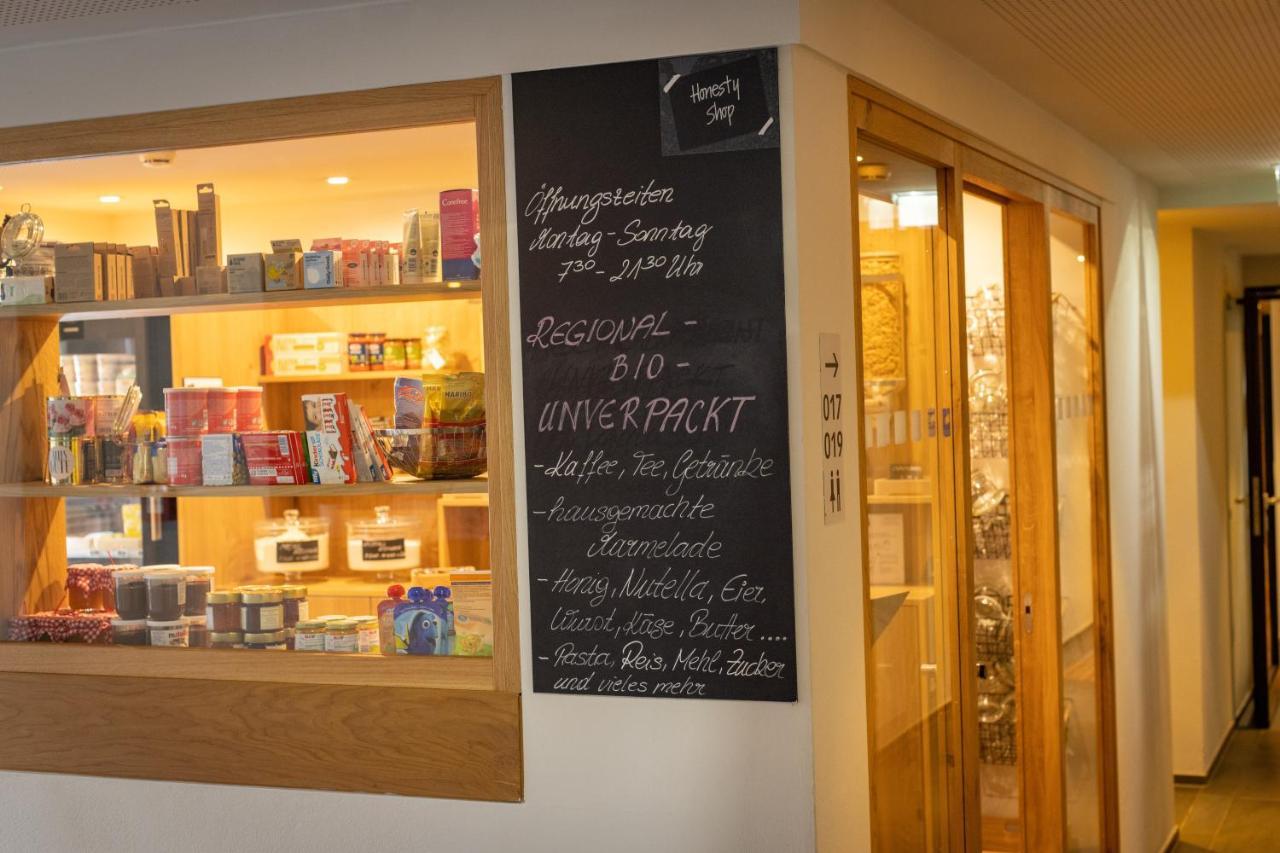 Honesty
Shop
Öffnungszeiten
Montag-Sonntag
7³⁰ - 21³⁰ Uhr
REGIONAL -
BIO -
UNVERPACKT
- Kaffee, Tee, Getränke
- hausgemachte
Marmelade
- Honig, Nutella, Eier,
Wurst, Käse, Butter....
- Pasta, Reis, Mehl, Zucker
und vieles mehr
→
017
019
Carefree
HARIBO